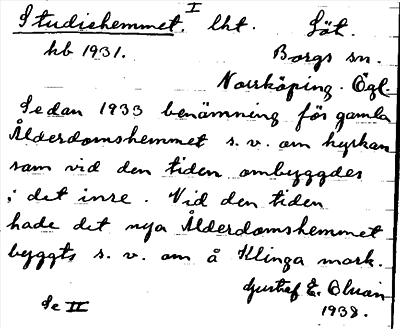 I
Studiehemmet. lht. Löt.
hb 1931. Borgs sn.
Norrköping. Ögl.
Sedan 1933 benämning för gamla
Ålderdomshemmet s.v. om kyrkan
som vid den tiden ombyggdes
i det inre. Vid den tiden
hade det nya Ålderdomshemmet
byggts s.v. om å Klinga mark.
Gustaf E.
1938.
Se II